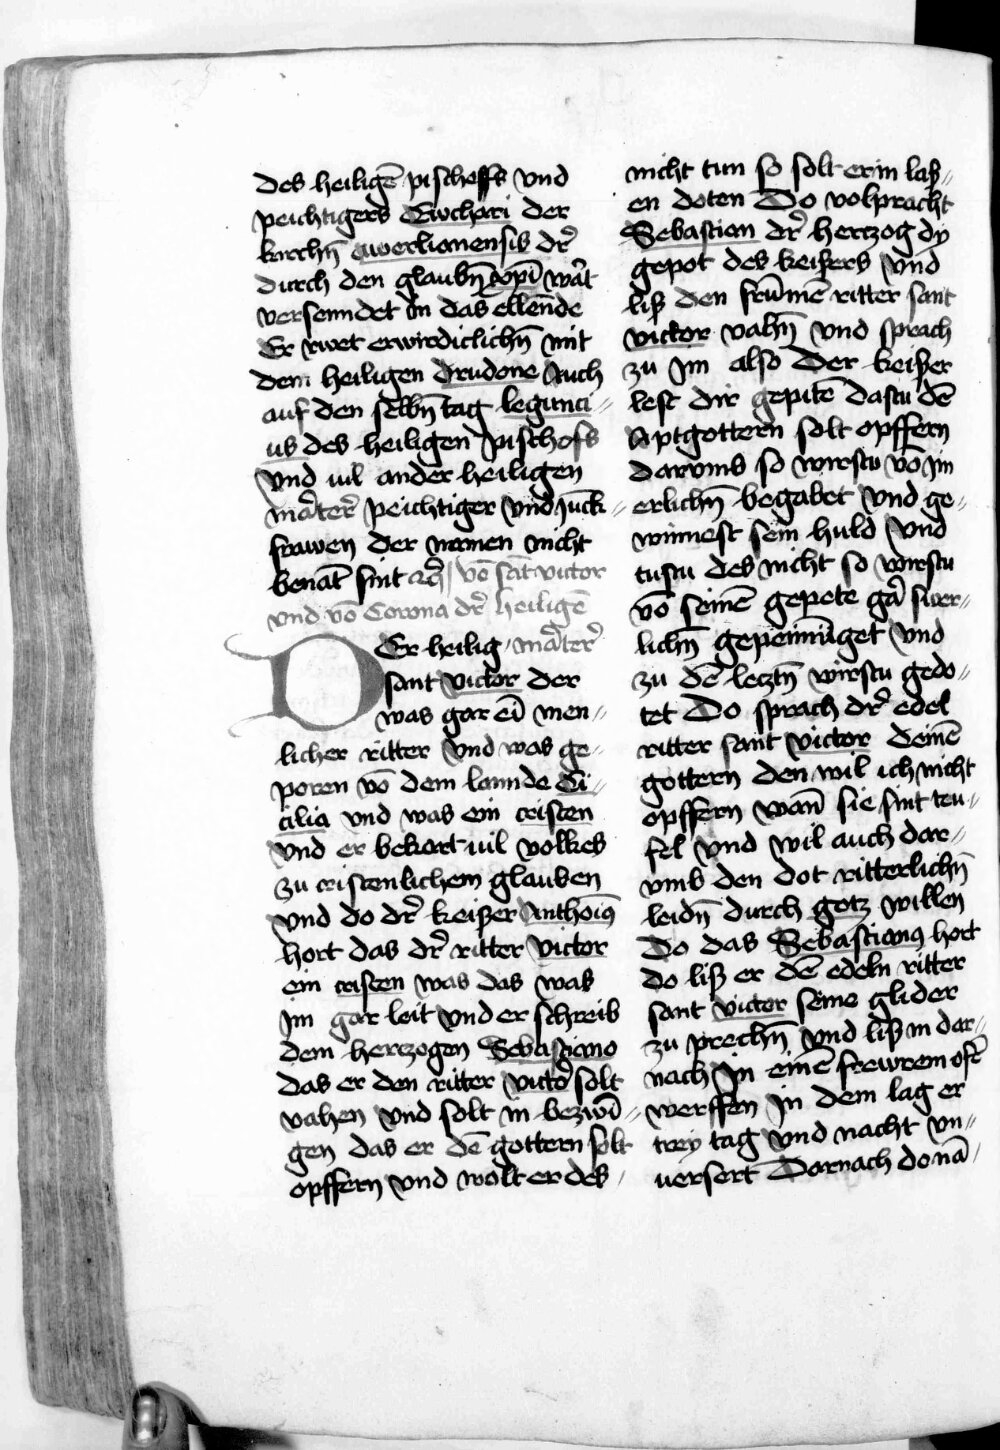 des heiligē pischoffs vnd
peichtigers Ewcheri der
kirchn̄ awerlianensis dr̄
durch den glaubn̄ xp̄i wa͛t
versenndet In das ellende
Er rwet erwirdiclichn̄ mit
dem heiligen drudone Auch
auf den selbn̄ tag leguncı-
us des heiligen pischofs
vnd vil ander heiligen
ma͛ter͛ peichtiger vnd Jūck-
frawen der namen nicht
benāt sint ꝛc͛ vō sāt victor
vnd vō Corona dr̄ heiligē
DEr heilig ma͛ter͛
sant victor der
was gar eī men-
licher ritter vnd was ge-
poren vō dem lannde Ci-
cilia vnd was ein cristen
vnd er bekart vil volkes
zu cristenlichem glauben
vnd do dr̄ keißer Anthoīꝯ
hort das dr̄ ritter victor
ein cristen was das was
Im gar leit vnd er schreib
dem herczogen Sebastiano
das er den ritter victo͛ solt
vahen vnd solt in bezwī-
gen das er dē gottern solt
opffern vnd wolt er des
nicht tun so solt er in laß-
en doten Do volpracht
Sebastian dr̄ herczog dy
gepot des keißers vnd
liß den frūmē ritter sant
victor vahn̄ vnd sprach
zu Im also Der keißer
lest dir gepitē dastu dē
Aptgottern solt opffern
darvmb so wirstu vō Im
erlichn̄ begabet vnd ge-
winnest sein huld vnd
tustu des nicht so wirstu
vō seinē gepete ga͛ swer-
lichn̄ gepeinniget vnd
zu dē leczn̄ wirstu gedo-
tet Do sprach dr̄ edel
ritter sant victor deinē
gottern den wil ich nicht
opffern wan̄ sie sint teu-
fel vnd wil auch dar-
vmb den dot ritterlichn̄
leidn̄ durch gotz willen
Do das Sebastianꝯ hort
do liß er dē edeln ritter
sant victor seine glider
zu prechn̄ vnd liß in dar-
nach In einē fewrem ofē
werffen In dem lag er
trey tag vnd nacht vn-
versert Darnach do nā